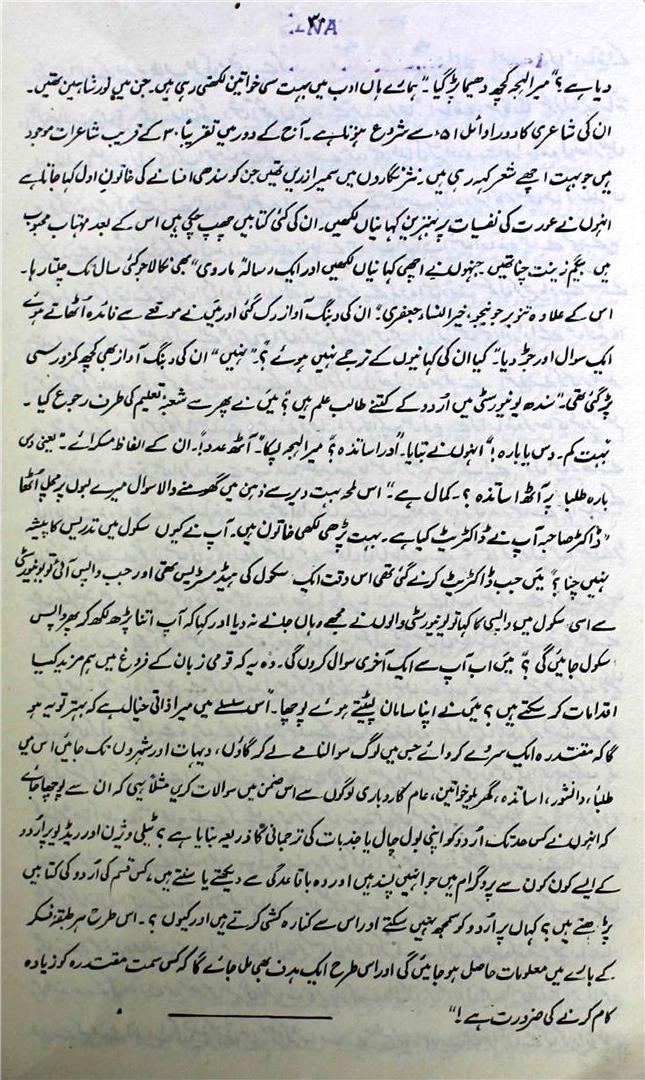 ۳۱
دیا ہے؟" میرا لہجہ کچھ دھیما پڑ گیا۔" ہمارے ہاں ادب میں بہت سی خواتین لکھتی رہی ہیں۔ جن میں نور شاہین تھیں۔
ان کی شاعری کا دور اوائل ۵۱ء سے شروع ہوتا ہے۔ آج کے دور میں تقریباً ۳۰ کے قریب شاعرات موجود
ہیں جو بہت اچھے شعر کہہ رہی ہیں۔ نثر نگاروں میں سمیرا زریں تھیں جن کو سندھی افسانے کی خاتون اول کہا جاتا ہے
انہوں نے عورت کی نفسیات پر بہترین کہانیاں لکھیں۔ ان کی کئی کتابیں چھپ چکی ہیں اس کے بعد مہتاب محبوب
ہیں بیگم زینت چنا تھیں جنہوں نے اچھی کہانیاں لکھیں اور ایک رسالہ "ماروی" بھی نکالا جو کئی سال تک چلتا رہا۔
اس کے علاوہ تنویر جونیجو، خیر النساء جعفری۔" ان کی دبنگ آواز رک گئی اور میں نے موقعے سے فائدہ اٹھاتے ہوئے
ایک سوال اور جڑ دیا۔" کیا ان کی کہانیوں کے ترجمے نہیں ہوئے؟" "نہیں" ان کی دبنگ آواز بھی کچھ کمزور سی
پڑ گئی تھی۔ "سندھ یونیورسٹی میں اردو کے کتنے طالب علم ہیں؟" میں نے پھر سے شعبۂ تعلیم کی طرف رجوع کیا۔
"بہت کم۔ دس یا بارہ!" انہوں نے بتایا۔ "اور اساتذہ؟" میرا لہجہ لپکا۔ "آٹھ عدد!"۔ ان کے الفاظ مسکرائے۔ "یعنی دس
بارہ طلبا پر آٹھ اساتذہ؟۔ کمال ہے۔" اس لمحہ بہت دیر سے ذہن میں گھومنے والا سوال میرے لبوں پر مچل اٹھا
"ڈاکٹر صاحبہ آپ نے ڈاکٹریٹ کیا ہے۔ بہت پڑھی لکھی خاتون ہیں۔ آپ نے کیوں سکول میں تدریس کا پیشہ
نہیں چنا؟" میں جب ڈاکٹریٹ کرنے گئی تھی اس وقت ایک سکول کی ہیڈ مسٹریس تھی اور جب واپس آئی تو یونیورسٹی
سے اسی سکول میں واپسی کا کہا تو یونیورسٹی والوں نے مجھے وہاں جانے نہ دیا اور کہا کہ آپ اتنا پڑھ لکھ کر پھر واپس
سکول جائیں گی؟" میں اب آپ سے ایک آخری سوال کروں گی۔ وہ یہ کہ قومی زبان کے فروغ میں ہم مزید کیا
اقدامات کر سکتے ہیں؟ میں نے اپنا سامان لپیٹتے ہوئے پوچھا۔ "اس سلسلے میں میرا ذاتی خیال ہے کہ بہتر تو یہ ہو
گا کہ مقتدرہ ایک سروے کروائے جس میں لوگ سوالنامے لے کر گاؤں، دیہات اور شہروں تک جائیں اس میں
طلباء، دانشور، اساتذہ، گھریلو خواتین، عام کاروباری لوگوں سے اس ضمن میں سوالات کریں مثلاً یہی کہ ان سے پوچھا جائے
کہ انہوں نے کس حد تک اردو کو اپنی بول چال یا جذبات کی ترجمانی کا ذریعہ بنایا ہے؟ ٹیلی وژن اور ریڈیو پر اردو
کے ایسے کون کون سے پروگرام ہیں جو انہیں پسند ہیں اور وہ باقاعدگی سے دیکھتے یا سنتے ہیں، کس قسم کی اردو کی کتابیں
پڑھتے ہیں؟ کہاں پر اردو کو سمجھ نہیں سکتے اور اس سے کنارہ کشی کرتے ہیں اور کیوں؟۔ اس طرح ہر طبقۂ فکر
کے بارے میں معلومات حاصل ہو جائیں گی اور اس طرح ایک ہدف بھی مل جائے گا کہ کس سمت مقتدرہ کو زیادہ
کام کرنے کی ضرورت ہے!"